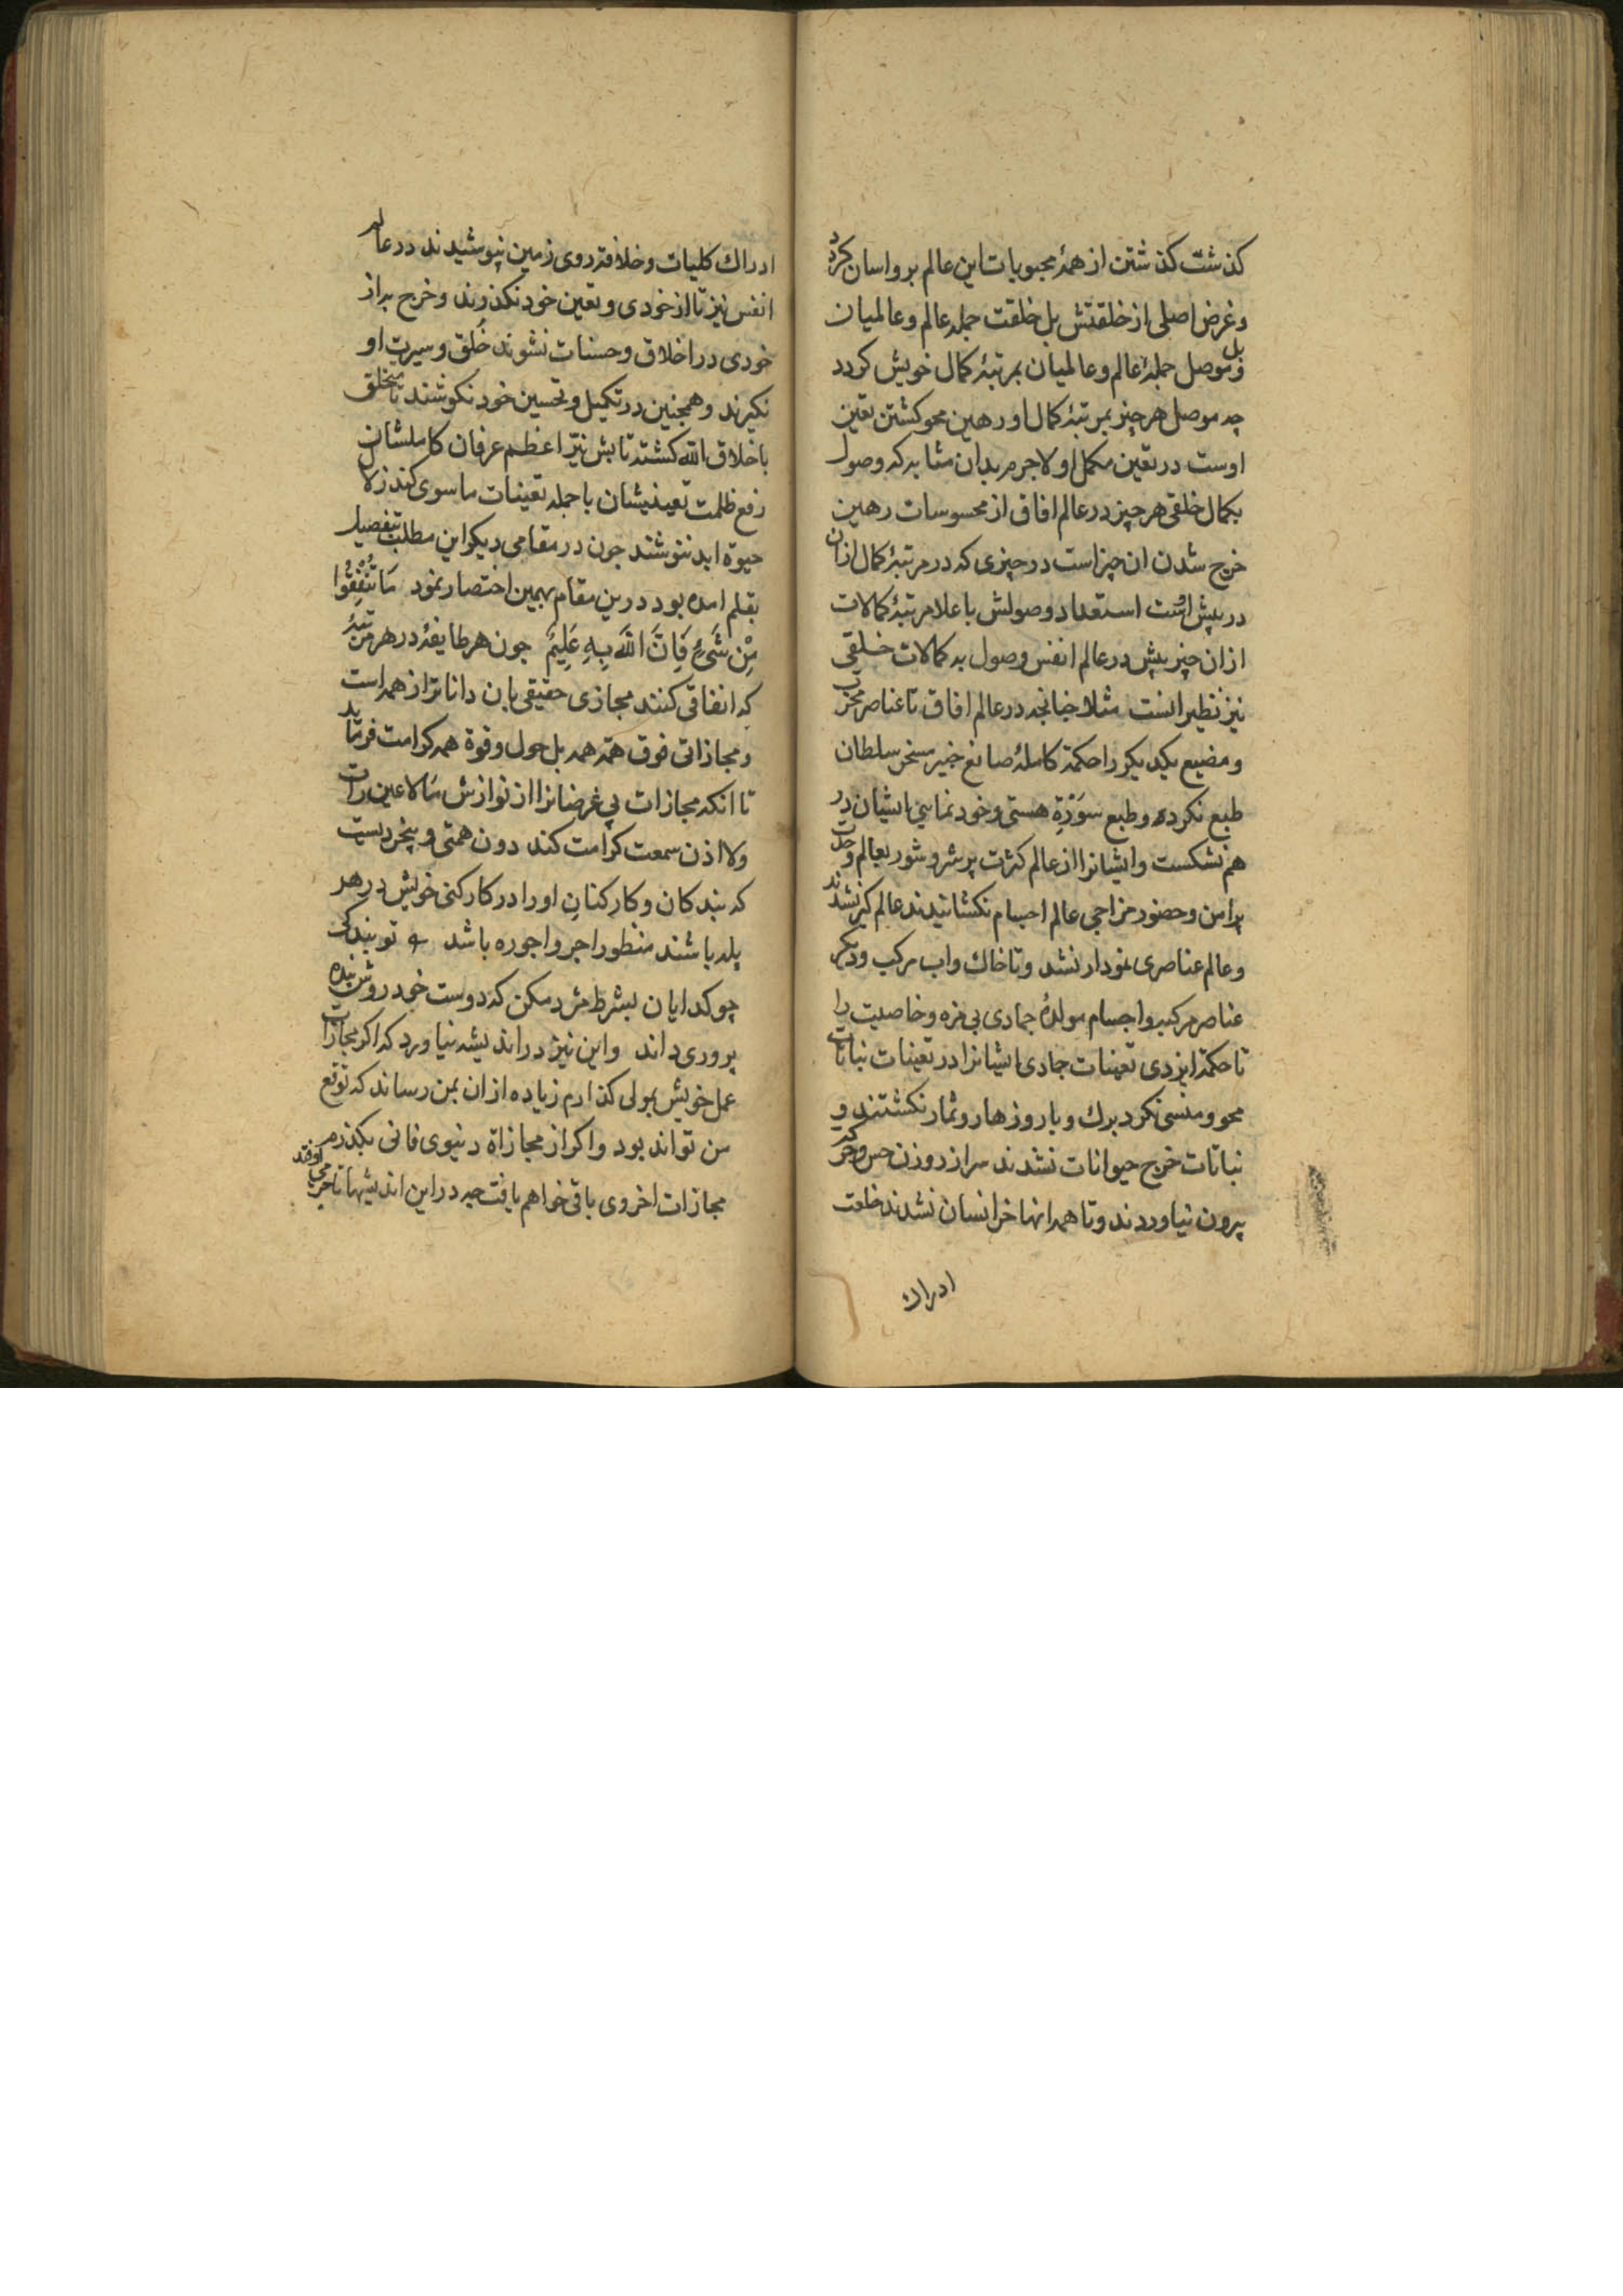 کذشت کذشتن از همهٔ محبوبات این عالم برو اسان کردد
و غرض اصلی از خلقتش بل خلقت جملهٔ عالم و عالمیان
بل و موصل جملهٔ عالم و عالمیان بمرتبهٔ کمال خویش کردد
چه موصل هر چیز بمرتبهٔ کمال او رهین محو کشتن تعین
اوست در تعین مکمل او لاجرم بدان مثابه که وصول
بکمال خلقی هر چیز در عالم افاق از محسوسات رهین
خرج شدن ان چیز است در چیزی که در مرتبهٔ کمال ازان
در پیش است استعداد وصولش باعلا مرتبهٔ کمالات
ازان چیز پیش در عالم انفس وصول به کمالات خلقی
نیز نظیر انست مثلا چنانچه در عالم افاق تا عناصر مخرب
و مضیع یکدیکر را حکمة کاملهٔ صانع خبیر مسخر سلطان
طبع نکرده و طبع سَوْرَةِ هستی و خود نمایی ایشان در
هم نشکست و ایشانرا از عالم کثرت پر شر و شور بعالم وحدت
پرامن و حضور مزاجی عالم اجسام نکشانیدند عالم کیر نشدند
و عالم عناصری نمودار نشد و تا خاک و اب مرکب و دیکر
عناصر مرکب و اجسام مولدهٔ جمادی بی مزه و خاصیت را
تا حکمة ایزدی تعینات جمادی ایشانرا در تعینات نباتات
محو و منسی نکرد برک و بار و ازهار و ثمار نکشتند و
نباتات خرج حیوانات نشدند سر از روزن حس و حرکت
بیرون نیاوردند و تا همه انها خرج انسان نشدند خلعت
ادراک
ادراک کلیات و خلافة روی زمین نپوشیدند در عالم
انفس نیز تا از خودی و تعین خود نکذرند و خرج به از
خودی در اخلاق و حسنات نشوند خُلق و سیرت او
نکیرند و همچنین در تکمیل و تحسین خود نکوشند تا متخلق
باخلاق الله کشته تابش نیّر اعظم عرفان کاملشان
رفع ظلمت تعینیشان با جمله تعینات ماسوی کند زلال
حیوة ابد ننوشند چون در مقامی دیکر این مطلب بتفصیل
بقلم امده بود درین مقام بهمین اختصار نمود مَا تُنْفِقُوا
مِنْ شَیْءٍ فَاِنَّ اللّٰهَ بِهِ عَلِیمٌ چون هر طایفهٔ در هر مرتبهٔ
که انفاقی کنند مجازی حقیقی بان داناتر از همه است
و مجازاتی فوق همّة همه بل حول و قوة همه کرامت فرماید
تا انکه مجازات بی غرضانرا از نوازش مَالا عین رات
ولا اذن سمعت کرامت کند دون همتی و بیخردیست
که بندکان و کارکنانِ او را در کارکنی خویش در هر
پله باشند منظور اجر و اجوره باشد تو بندکی
چو کدایان بشرط مزد مکن که دوست خود روش بنده
پروری داند و این نیز در اندیشه نیاورد که اکر مجازات
عمل خویش بمولی کذارم زیاده ازان بمن رساند که توقع
من تواند بود و اکر از مجازاة دنیوی فانی بکذرم
مجازات اخروی باقی خواهم یافت چه در این اندیشها تاجری